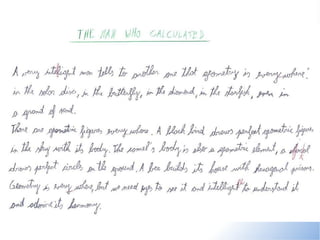 THE MAN WHO CALCULATED
A very intelligent man tells to another one that geometry is everywhere:
in the solar disc, in the butterfly, in the diamond, in the starfish, even in
a grand of sand.
There are geometric figures everywhere. A black bird draws perfect geometric figures
in the sky with its body. The camel's body is also a geometric element, a
draws perfect circles in the ground. A bee builds its house with hexagonal prisms.
Geometry is everywhere, but we need eyes to see it and intelligent to understand it
and admire its harmony.